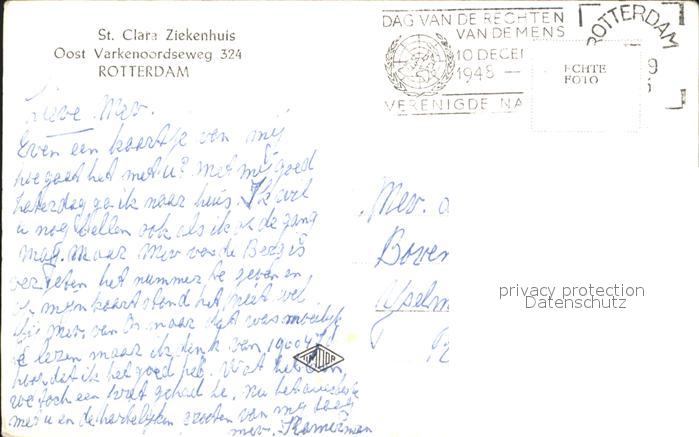 St. Clara Ziekenhuis
Oost Varkenoordseweg 324
ROTTERDAM
DAG VAN DE RECHTEN
VAN DE MENS
10 DECE
1948 —
VERENIGDE NA
ROTTERDAM
9
ECHTE
FOTO
Lieve Mev.
Even een kaartje van mij
hoe gaat het met u? met mij goed
Zaterdag ga ik naar huis. Ik wil
u nog bellen ook als ik de gang
mag. Maar Mev v de Berg is
vergeten het nummer te geven en
mijn kaart stond het niet wel
die mev. van maar dat was moeilijk
te lezen maar ik denk van 19004
hoop dat ik het goed heb. Wat hebben
we toch een pret gehad he. nu het
met u en de hartelijken groeten van mij
mev. Kamerman
TIMDOR
Mev.
Boven
Yselm
privacy protection
Datenschutz